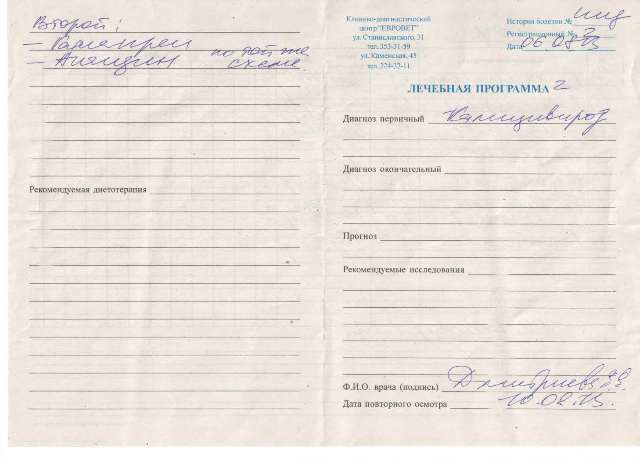 Второй:
- Гамапрен
- Анандин по той же схеме
Рекомендуемая диетотерапия
Клинико-диагностический
центр "ЕВРОВЕТ"
ул. Станиславского, 31
тел. 353-31-59
ул. Каменская, 45
тел. 224-32-11
История болезни №
Регистрационный №
Дата 06.08.15
ЛЕЧЕБНАЯ ПРОГРАММА 2
Диагноз первичный Калицивироз
Диагноз окончательный
Прогноз
Рекомендуемые исследования
Ф.И.О. врача (подпись) Дмитриева
Дата повторного осмотра 10.08.15.